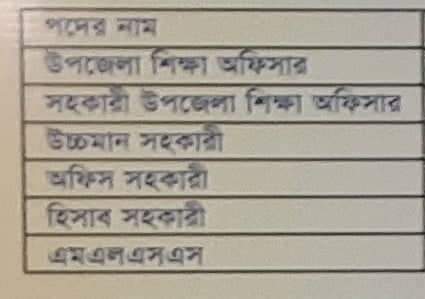 পদের নাম
উপজেলা শিক্ষা অফিসার
সহকারী উপজেলা শিক্ষা অফিসার
উচ্চমান সহকারী
অফিস সহকারী
হিসাব সহকারী
এমএলএসএস